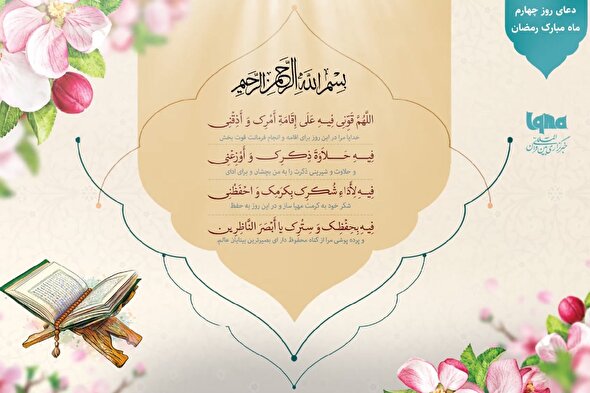 دعای روز چهارم
ماه مبارک رمضان
iqna
خبرگزاری بین المللی قرآن
بِسْمِ اللَّهِ الرَّحْمَنِ الرَّحِيمِ
اللَّهُمَّ قَوِّنِی فِیهِ عَلَی إِقَامَةِ أَمْرِکَ وَ أَذِقْنِی
خدایا مرا در این روز برای اقامه و انجام فرمانت قوت بخش
فِیهِ حَلاَوَةَ ذِکْرِکَ وَ أَوْزِعْنِی
و حلاوت و شیرینی ذکرت را به من بچشان و برای ادای
فِیهِ لِأَدَاءِ شُکْرِکَ بِکَرَمِکَ وَ احْفَظْنِی
شکر خود به کرمت مهیا ساز و در این روز به حفظ
فِیهِ بِحِفْظِکَ وَ سِتْرِکَ یَا أَبْصَرَ النَّاظِرِینَ
و پرده پوشی مرا از گناه محفوظ دار ای بصیرترین بینایان عالم.